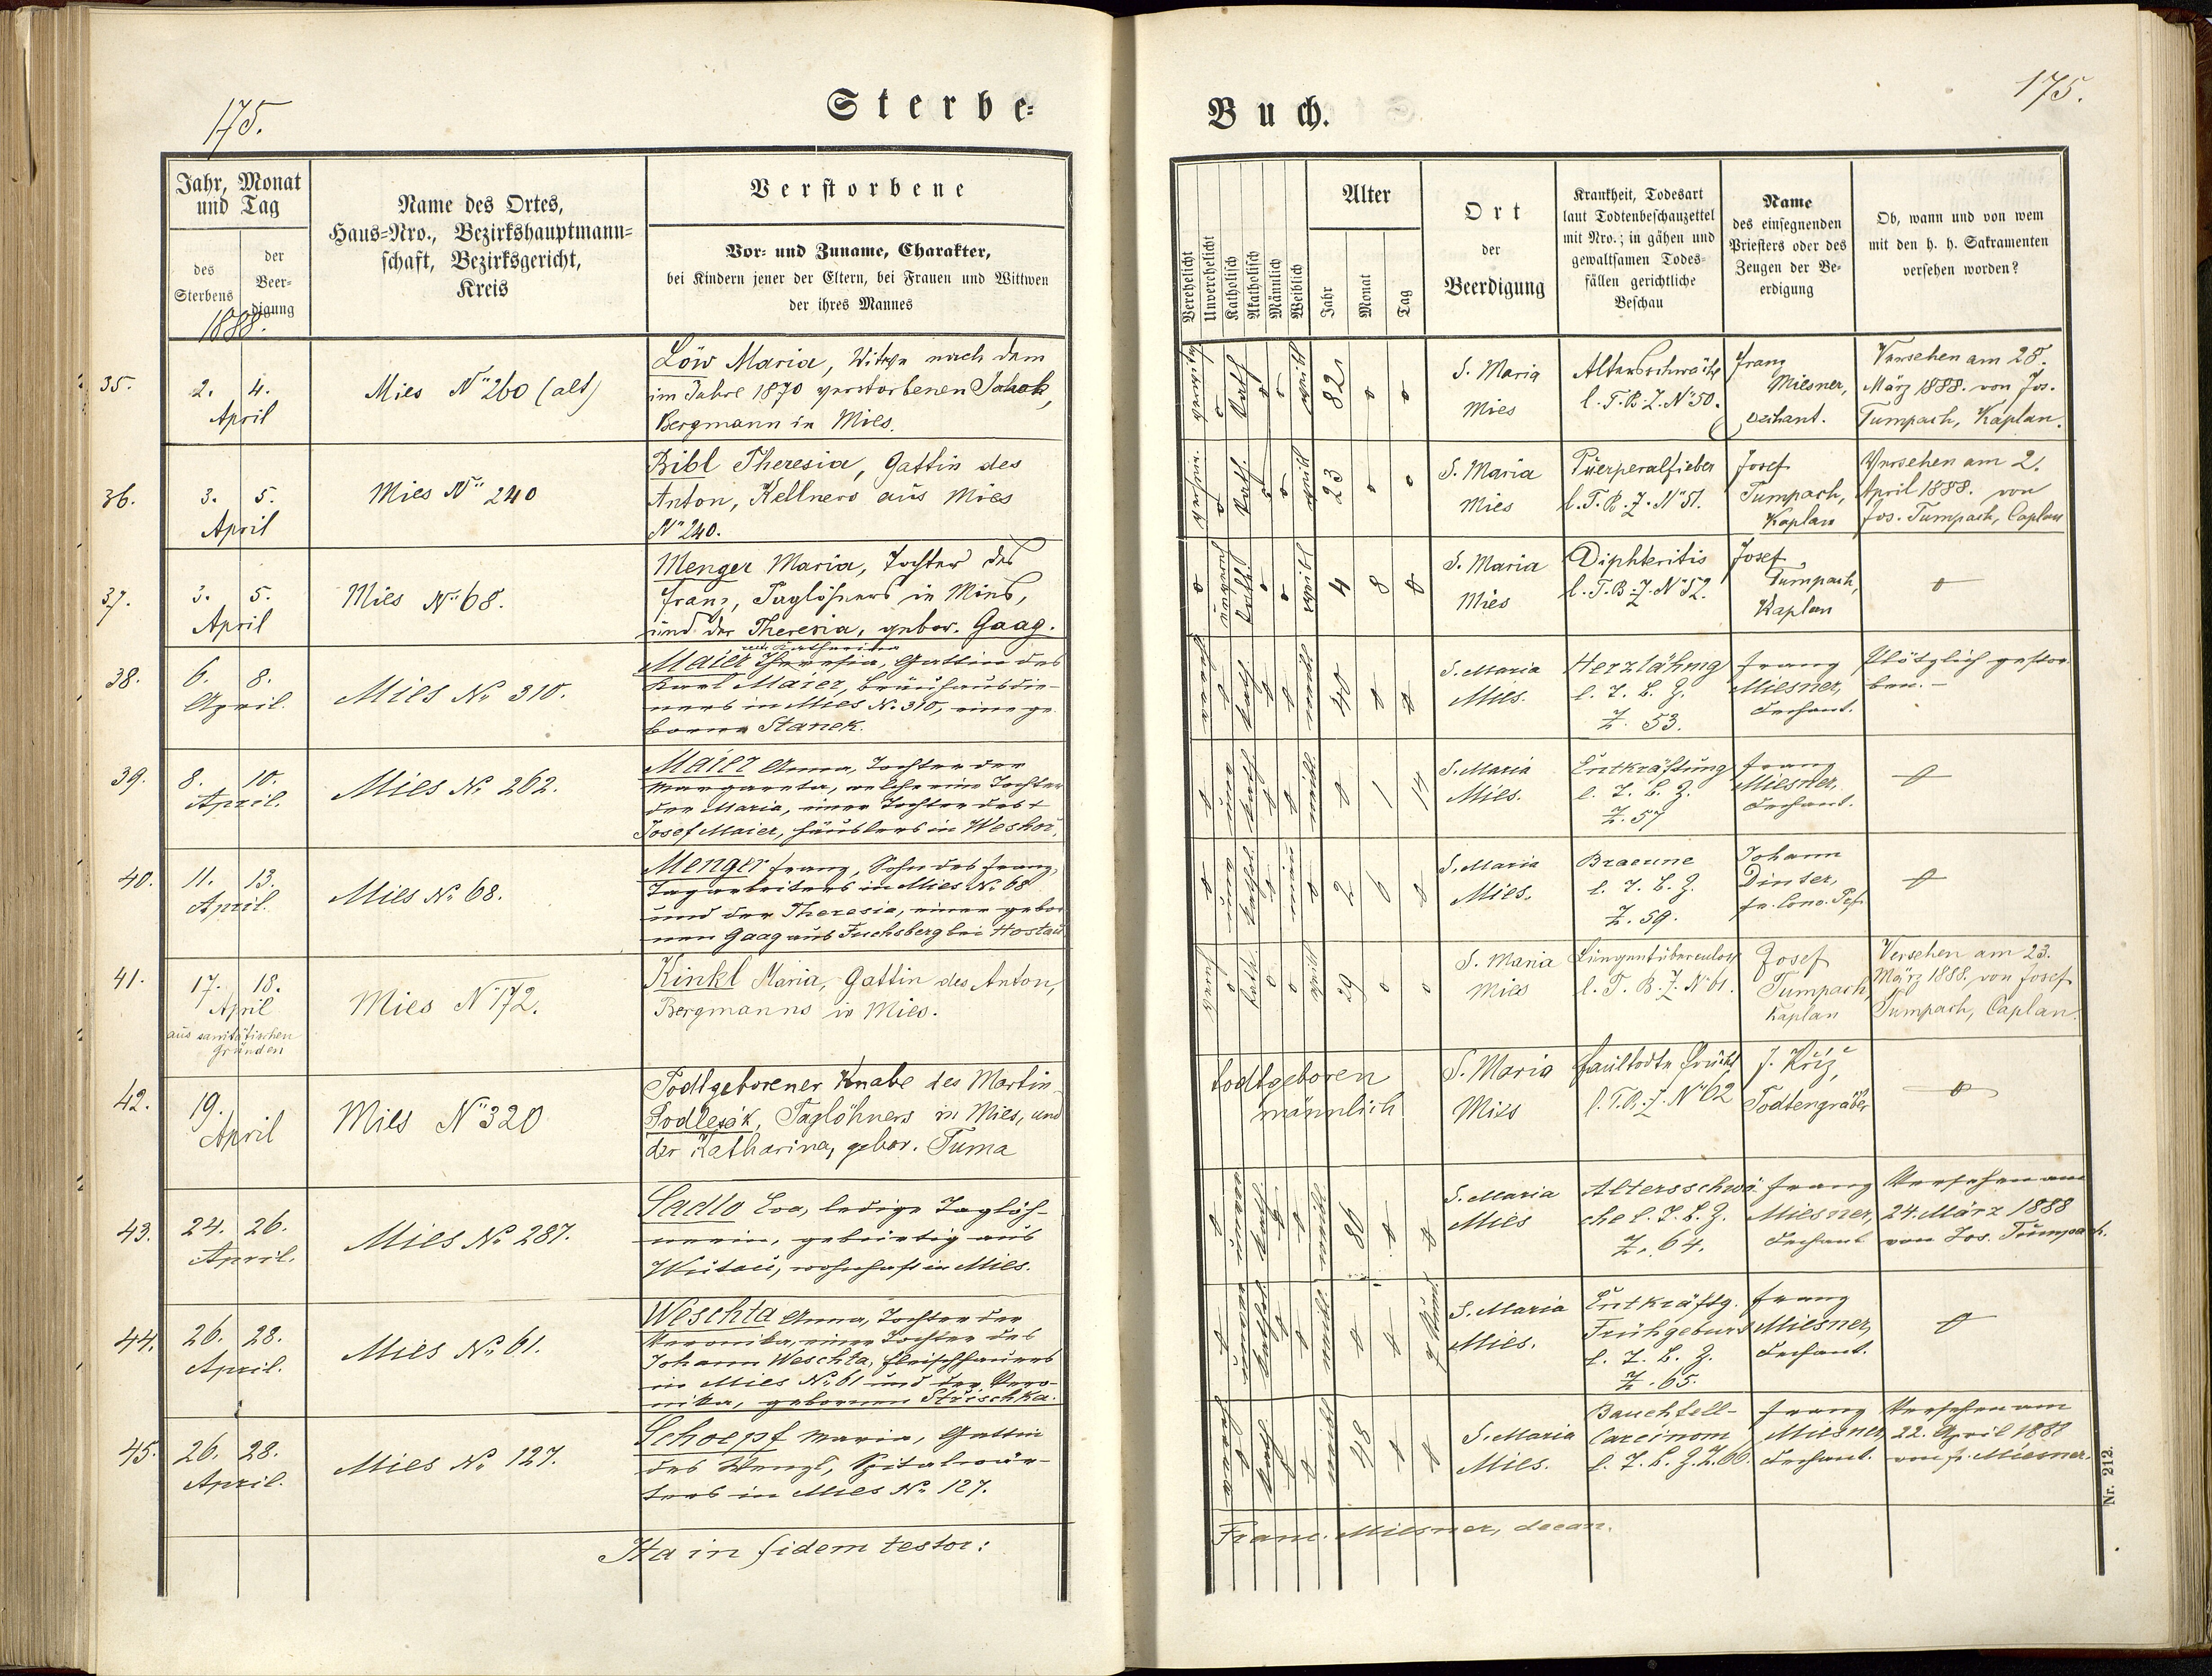 175.
Sterbe-
Jahr, Monat
und Tag
des
Sterbens
der
Beer-
digung
1888.
Name des Ortes,
Haus-Nro., Bezirkshauptmann-
schaft, Bezirksgericht,
Kreis
Verstorbene
Vor- und Zuname, Charakter,
bei Kindern jener der Eltern, bei Frauen und Wittwen
der ihres Mannes
35.
2. 4.
April
Mies N° 260 (alt)
Löw Maria, Witwe nach dem
im Jahre 1870 verstorbenen Jakob,
Bergmann in Mies.
36.
3. 5.
April
Mies N° 240
Bibl Theresia, Gattin des
Anton, Kellners aus Mies
N° 240.
37.
3. 5.
April
Mies N° 68.
Menger Maria, Tochter des
Franz, Taglöhners in Mies,
und der Theresia, gebor. Gaag.
38.
6. 8.
April.
Mies No 310.
recte Katharina
Maier Theresia, Gattin des
Karl Maier, Bräuhausdie-
ners in Mies No. 310, eine ge-
borne Stanek.
39.
8. 10.
April.
Mies No 262.
Maier Anna, Tochter der
Margareta, welche eine Tochter
der Maria, einer Tochter des +
Josef Maier, Häuslers in Weshor.
40.
11. 13.
April.
Mies No 68.
Menger Franz, Sohn des Franz,
Tagarbeiters in Mies No. 68
und der Theresia, einer gebor-
nen Gaag aus Fuchsberg bei Hostau
41.
17. 18.
April
aus sanitätischen
Gründen
Mies N° 172.
Kinkl Maria, Gattin des Anton,
Bergmanns in Mies.
42.
19.
April
Mies N° 320
Todtgeborener Knabe des Martin
Podlesak, Taglöhners in Mies, und
der Katharina, gebor. Tuma
43.
24. 26.
April.
Mies No 287.
Sadlo Eva, ledige Taglöh-
nerin, gebürtig aus
Wuttau, wohnhaft in Mies.
44.
26. 28.
April.
Mies No 61.
Weschta Anna, Tochter der
Veronika, einer Tochter des
Johann Weschta, Fleischhauers
in Mies No. 61 und der Vero-
nika, gebornen Strischka.
45.
26. 28.
April.
Mies No 127.
Schoepf Maria, Gattin
des Wenzl, Spitalwär-
ters in Mies No. 127.
Ita in fidem testor:
175.
Buch.
Verehelicht
Unverehelicht
Katholisch
Akatholisch
Männlich
Weiblich
Alter
Jahr
Monat
Tag
Ort
der
Beerdigung
Krankheit, Todesart
laut Todtenbeschauzettel
mit Nro.; in gähen und
gewaltsamen Todes-
fällen gerichtliche
Beschau
Name
des einsegnenden
Priesters oder des
Zeugen der Be-
erdigung
Ob, wann und von wem
mit den h. h. Sakramenten
versehen worden?
o kath o o weibl 82 o o
S. Maria
Mies
Altersschwäche
l. T. B. Z. N° 50.
Franz
Miesner,
Dechant.
Versehen am 28.
März 1888. von Jos.
Tumpach, Kaplan.
o kath. o o weibl 23 o o
S. Maria
Mies
Puerperalfieber
l. T. B. Z. N° 51.
Josef
Tumpach,
Kaplan
Versehen am 2.
April 1888. von
Jos. Tumpach, Caplan
o kath. o o weibl 4 8 o
S. Maria
Mies
Diphteritis
l. T. B. Z. N° 52.
Josef
Tumpach,
Kaplan
o
o kath. o o 40 o o
S. Maria
Mies.
Herzlähmg
l. T. B. Z.
Z. 53.
Franz
Miesner,
Dechant.
Plötzlich gestor-
ben.-
o kath o o o 1 14
S. Maria
Mies.
Entkräftung
l. T. B. Z.
Z. 57
Franz
Miesner,
Dechant.
o
o kathol. o o 2 6 o
S. Maria
Mies.
Braeune
l. T. B. Z.
Z. 59.
Johann
Dinter,
o
o kath. o o weibl 29 o o
S. Maria
Mies
Lungentuberculose
l. T. B. Z. N° 61.
Josef
Tumpach,
Kaplan
Versehen am 23.
März 1888. von Josef
Tumpach, Caplan.
todtgeboren
männlich
S. Maria
Mies
faultodte Frucht
l. T. B. Z. N° 62
J. Kříž,
Todtengräber
o
o kath. o o 86 o o
S. Maria
Mies
Altersschwä-
che l. T. B. Z.
Z. 64.
Franz
Miesner,
Dechant
Versehen am
24. März 1888
von Jos. Tumpach.
o kathol. o o o o 7 Stund.
S. Maria
Mies.
Entkräftg.
Frühgeburt
l. T. B. Z.
Z. 65.
Franz
Miesner,
Dechant.
o
o kath o o 48 o o
S. Maria
Mies.
Bauchfell-
Carcinom
l. T. B. Z. Z. 66.
Franz
Miesner
Dechant.
Versehen am
22. April 1888
von F. Miesner.
Franc. Miesner, decan.
Nr. 212.